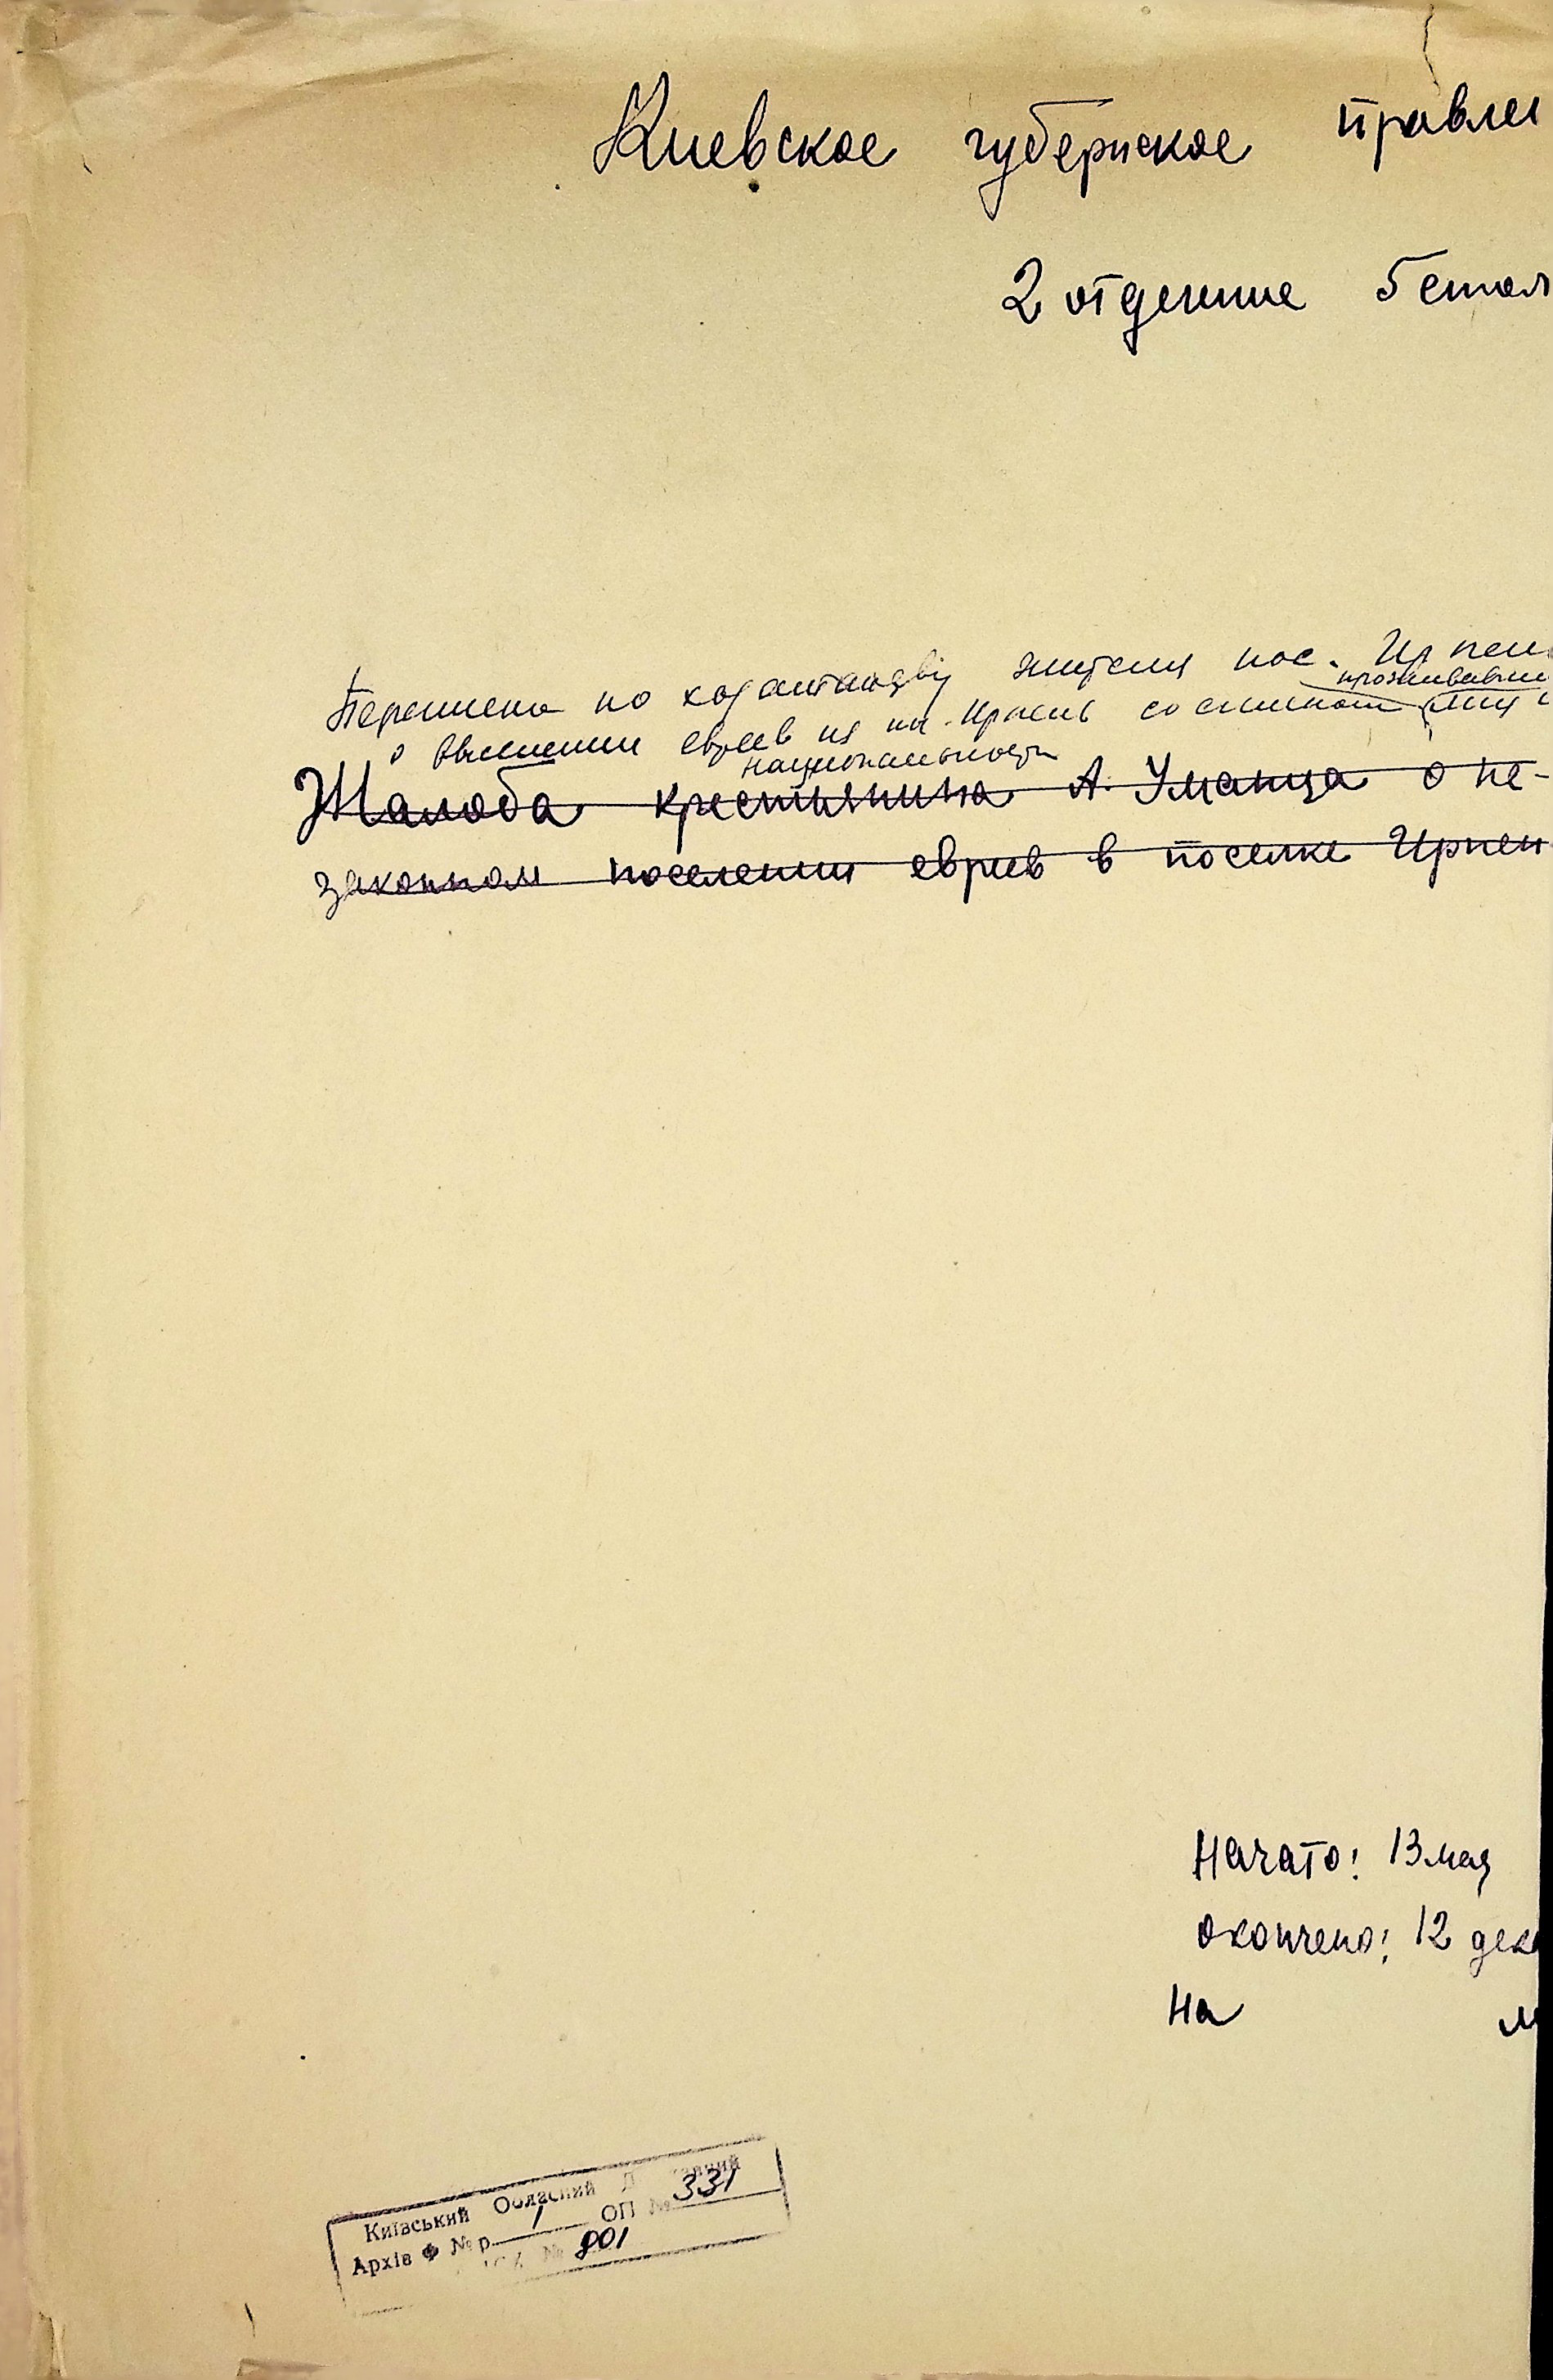 Киевское губернское правлен
2 отделение 5 стол
Переписка по ходатайству жителя пос. Ирпен
проживавши
о выселении евреев из пос. Ирпень со списком лиц
национальности
Жалоба крестьянина А. Уманца о не-
законном поселении евреев в поселке Ирпен
Начато: 13 мая
Окончено: 12 дека
На л
Київський Обласний Державний
Архів Ф № р 1 ОП № 331
№ 801